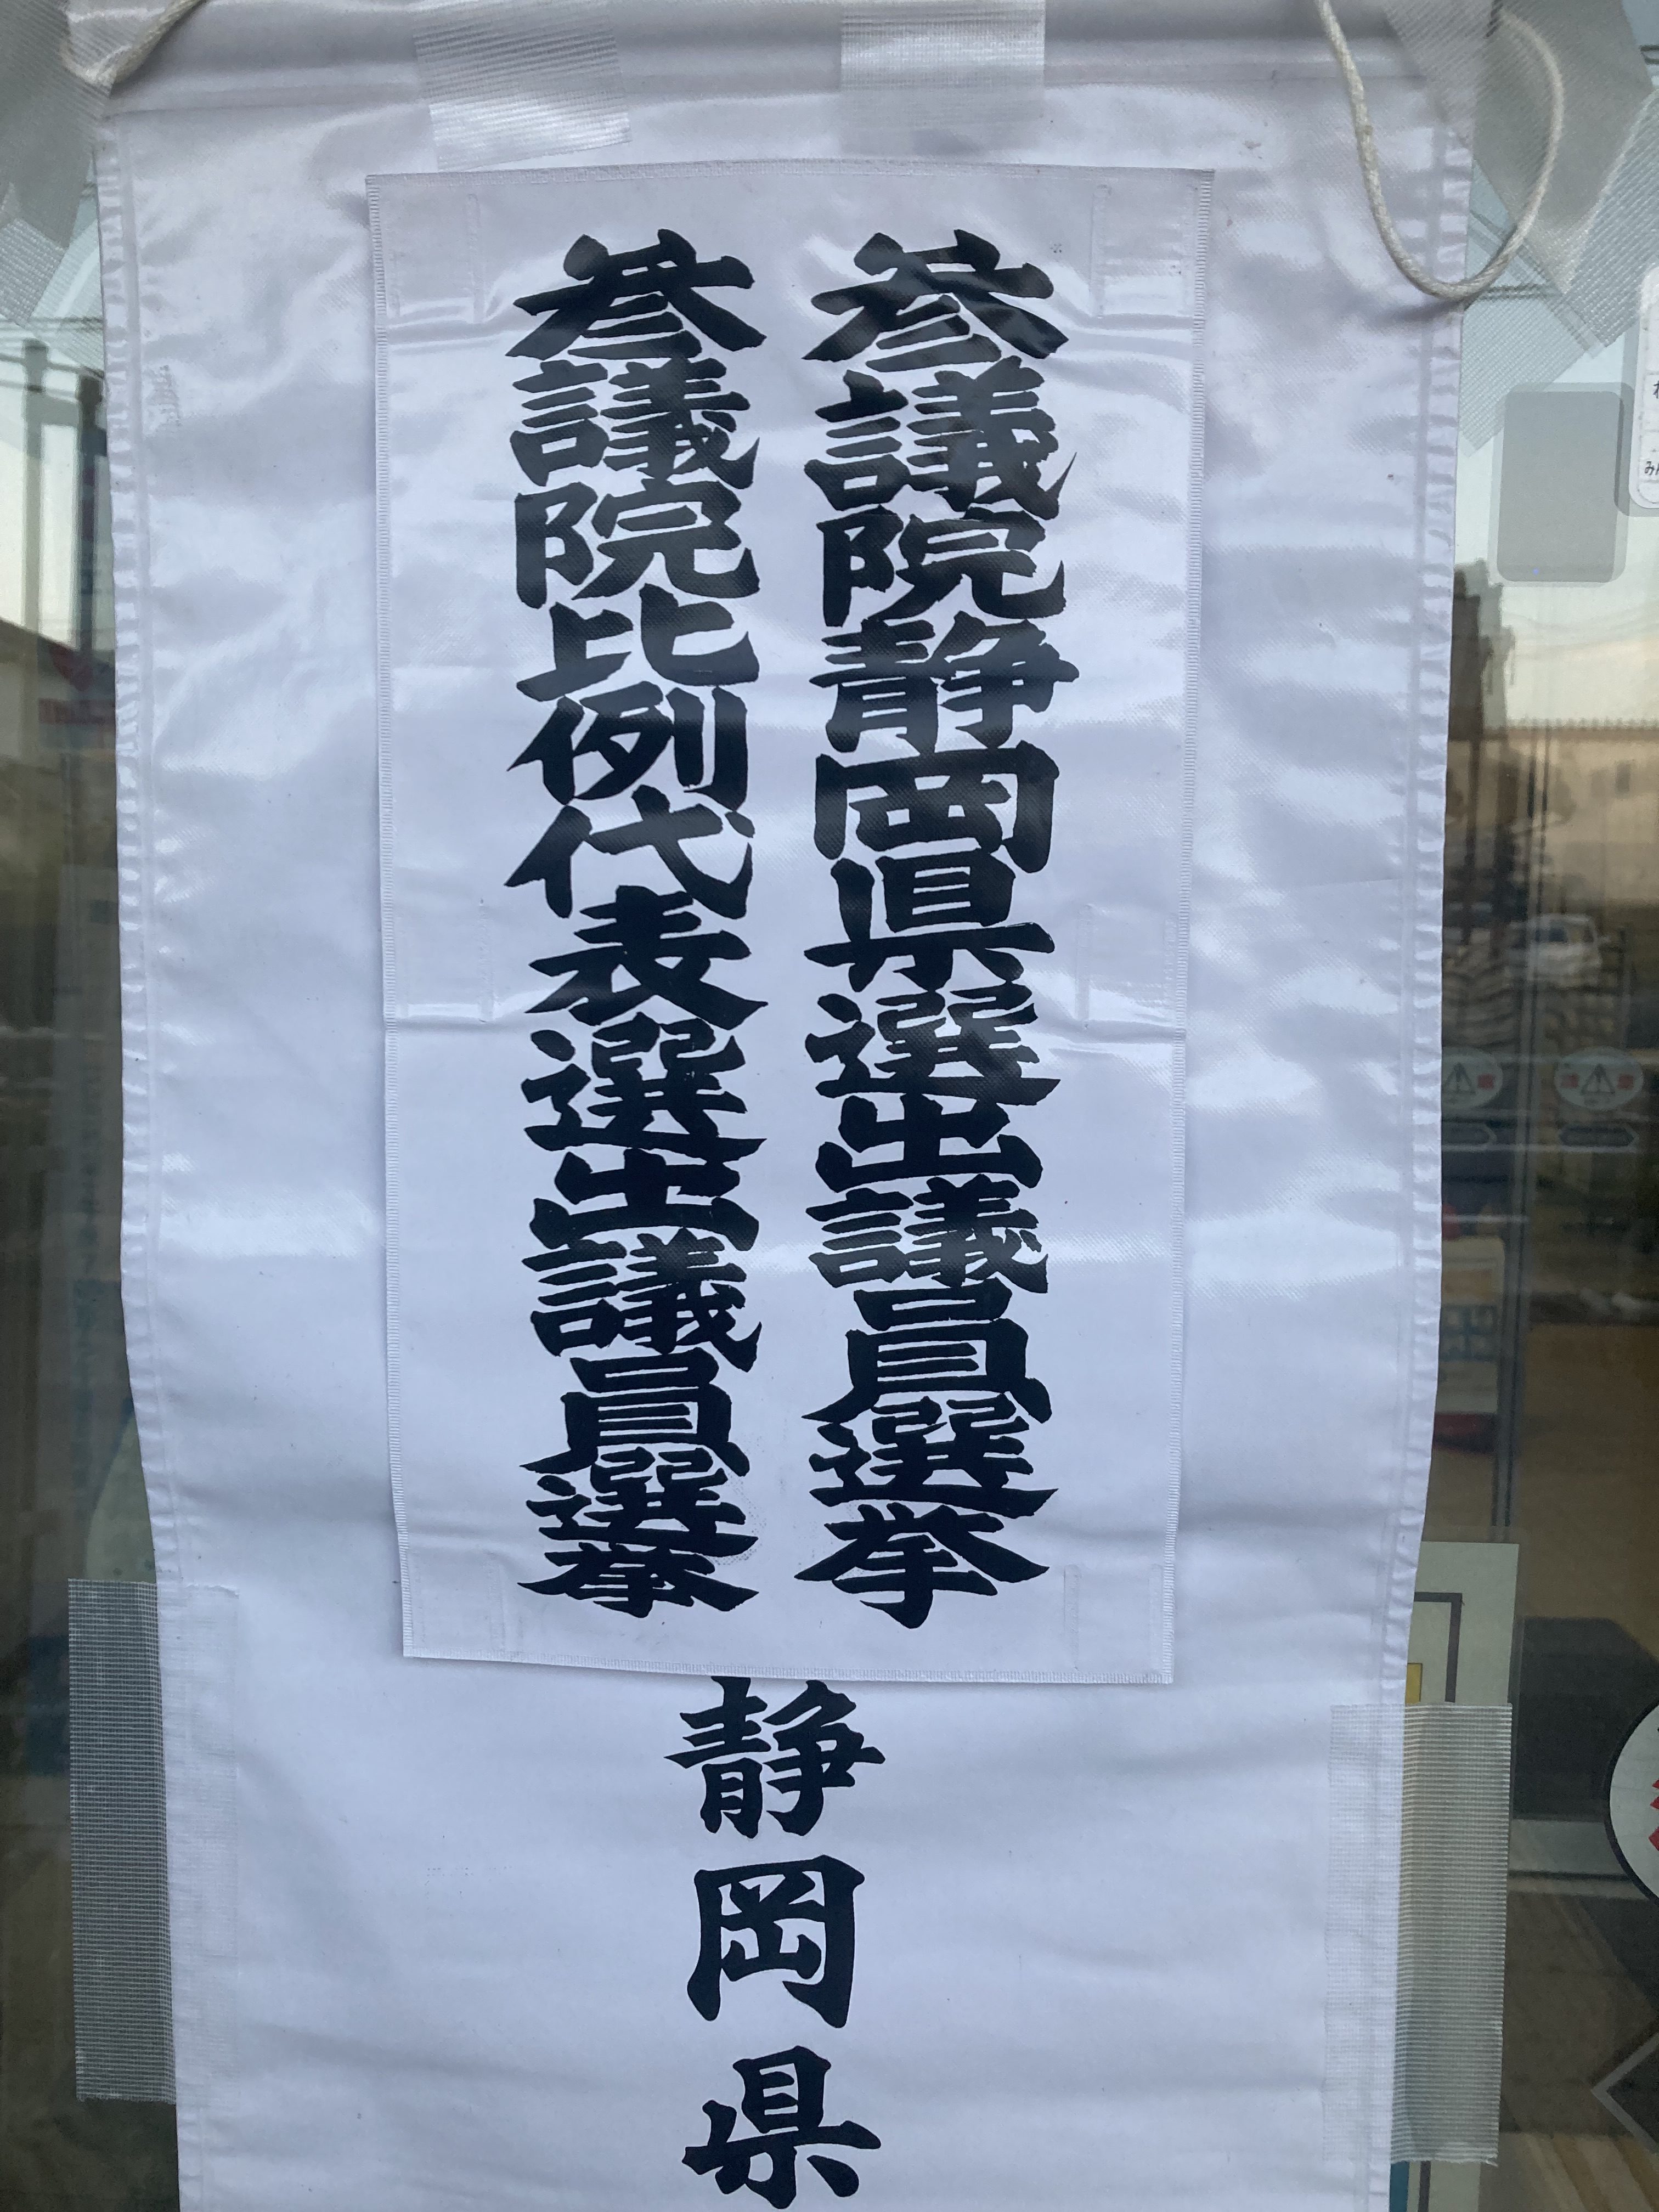 参議院静岡県選出議員選挙
参議院比例代表選出議員選挙
静岡県